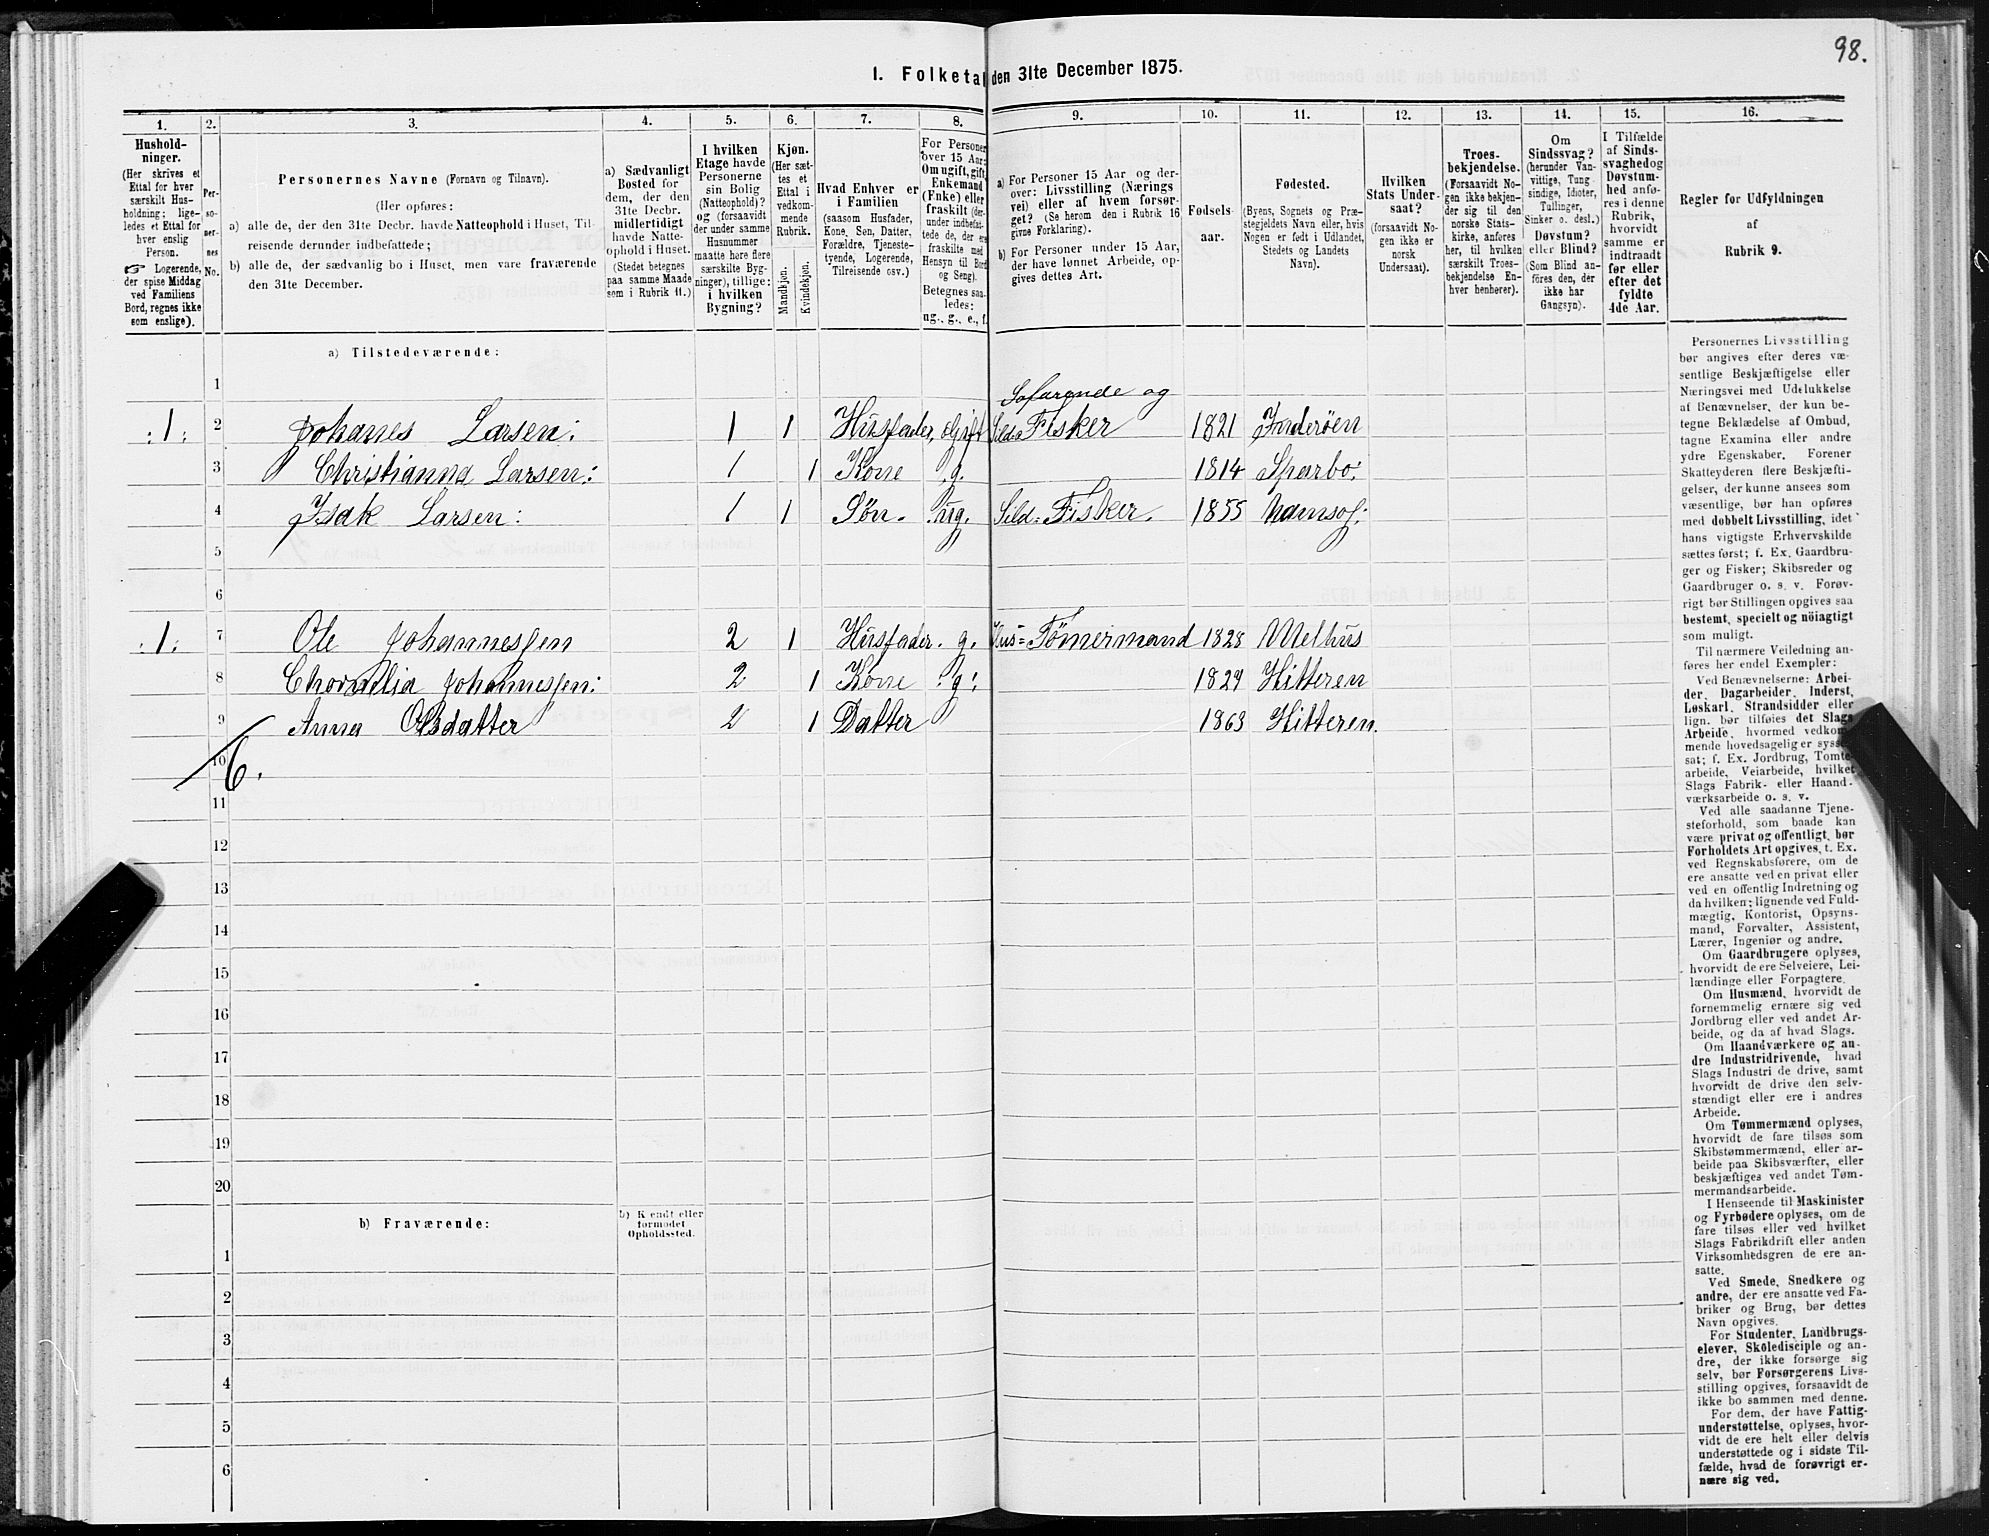 98.
I. Folketal den 31te December 1875.
1.
Hushold-
ninger.
(Her skrives et
Ettal for hver
særskilt Hus-
holdning; lige-
ledes et Ettal for
hver enslig
Person.
☞ Logerende,
der spise Middag
ved Familiens
Bord, regnes ikke
som enslige).
2.
Per-
so-
ner-
nes
No.
3.
Personernes Navne (Fornavn og Tilnavn).
(Her opføres:
a) alle de, der den 31te Decbr. havde Natteophold i Huset, Til-
reisende derunder indbefattede;
b) alle de, der sædvanlig bo i Huset, men vare fraværende
den 31te December.
4.
a) Sædvanligt
Bosted for
dem, der den
31te Decbr.
midlertidigt
havde Natte-
ophold i Huset.
(Stedet betegnes
paa samme Maade
som i Rubrik 11.)
5.
I hvilken
Etage havde
Personerne
sin Bolig
(Natteophold)?
og (forsaavidt
der under samme
Husnummer
maatte høre flere
særskilte Byg-
ninger), tillige:
i hvilken
Bygning?
6.
Kjøn.
(Her sæt-
tes et
Ettal i
vedkom-
mende
Rubrik.
Mandkjøn.
Kvindekjøn.
7.
Hvad Enhver er
i Familien
(saasom Husfader,
Kone, Søn, Datter,
Forældre, Tjeneste-
tyende, Logerende,
Tilreisende osv.)
8.
For Personer
over 15 Aar:
Om ugift, gift,
Enkemand
(Enke) eller
fraskilt (der-
under indbefat-
tede de, der ere
fraskilte med
Hensyn til Bord
og Seng).
Betegnes saa-
ledes:
ug., g., e., f.
9.
a) For Personer 15 Aar og der-
over: Livsstilling (Nærings
vei) eller af hvem forsør-
get? (Se herom den i Rubrik 16
givne Forklaring).
b) For Personer under 15 Aar,
der have lønnet Arbeide, op-
gives dettes Art.
10.
Fødsels-
aar.
11.
Fødested.
(Byens, Sognets og Præ-
stegjeldets Navn eller, hvis
Nogen er født i Udlandet,
Stedets og Landets
Navn).
12.
Hvilken
Stats Under-
saat?
(forsaavidt No-
gen ikke er
norsk
Undersaat).
13.
Troes-
bekjendelse.
(Forsaavidt No-
gen ikke bekjen-
der sig til den
norske Stats-
kirke, anføres
her, til hvilken
særskilt Troes-
bekjendelse En-
hver henhører).
14.
Om
Sindssvag?
(herunder Van-
vittige, Tung-
sindige, Idioter,
Tullinger,
Sinker o. desl.)
Døvstum?
eller Blind?
(Som Blind an-
føres den, der
ikke har
Gangsyn).
15.
I Tilfælde
af Sinds-
svaghed og
Døvstum-
hed anfø-
res i denne
Rubrik,
hvorvidt
samme er
indtraadt
før eller
efter det
fyldte
4de Aar.
16.
Regler for Udfyldningen
af
Rubrik 9.
a) Tilstedeværende:
1
Søfarende og
1. 2 Johanes Larsen: 1 1 Husfader, Gift Sild= Fisker 1821 Inderöen
3 Christianna Larsen: 1 1 Kone g. 1814 Sparbo:
4 Isak Larsen: 1 1 Søn. ug. Sild= Fisker. 1855 Namsos:
5
6
1. 7 Ole Johannessen 2 1 Husfader. g. Hus=Tömermand 1828 Melhus
8 Johannessen: 2 1 Kone g: 1829 Hitteren
9 Anna Olsdatter 2 1 Datter 1863 Hitteren.
10
6.
11
12
13
14
15
16
17
18
19
20
b) Fraværende:
b) Kjendt eller
formodet
Opholdssted.
1
2
3
4
5
6
Personernes Livsstilling
bør angives efter deres væ-
sentlige Beskjæftigelse eller
Næringsvei med Udelukkelse
af Benævnelser, der kun be-
tegne Beklædelse af Ombud,
tagne Examina eller andre
ydre Egenskaber. Forener
Skatteyderen flere Beskjæfti-
gelser, der kunne ansees som
væsentlige, bør han opføres
med dobbelt Livsstilling, idet
hans vigtigste Erhvervskilde
sættes først; f. Ex. Gaardbru-
ger og Fisker; Skibsreder og
Gaardbruger o. s. v. Forøv-
rigt bør Stillingen opgives saa
bestemt, specielt og nöiagtigt
som muligt.
Til nærmere Veiledning an-
føres her endel Exempler:
Ved Benævnelserne: Arbei-
der, Dagarbeider, Inderst,
Løskarl, Strandsidder eller
lign. bør tilføies det Slags
Arbeide, hvormed vedkom-
mende hovedsagelig er syssel-
sat; f. Ex. Jordbrug, Tomte-
arbeide, Veiarbeide, hvilket
Slags Fabrik- eller Haand-
værksarbeide o. s. v.
Ved alle saadanne Tjene-
steforhold, som baade kan
være privat og offentligt, bør
Forholdets Art opgives, t. Ex.
ved Regnskabsførere, om de
ere ansatte ved en privat eller
ved en offentlig Indretning og
da hvilken; lignende ved Fuld-
mægtig, Kontorist, Opsyns-
mand, Forvalter, Assistent,
Lærer, Ingeniør og andre.
Om Gaardbrugere oplyses,
hvorvidt de ere Selveiere, Lei-
lændinge eller Forpagtere.
Om Husmænd, hvorvidt de
fornemmelig ernære sig ved
Jordbrug eller ved andet Ar-
beide, og da af hvad Slags.
Om Haandværkere og an-
dre Industridrivende, hvad
Slags Industri de drive, samt
hvorvidt de drive den selv-
stændigt eller ere i andres
Arbeide.
Om Tømmermænd oplyses,
hvorvidt de fare tilsøs som
Skibstømmermænd, eller ar-
beide paa Skibsværfter, eller
beskjæftiges ved andet Tøm-
mermandsarbeide.
I Henseende til Maskinister
og Fyrbødere oplyses, om de
fare tilsøs eller ved hvilket
Slags Fabrikdrift eller anden
Virksomhedsgren de ere an-
satte.
Ved Smede, Snedkere og
andre, der ere ansatte ved Fa-
briker og Brug, bør dettes
Navn opgives.
For Studenter, Landbrugs-
elever, Skôledisciple og an-
dre, der ikke forsørge sig
selv, bør Forsørgerens Livs-
stilling opgives, forsaavidt de
ikke bo sammen med denne.
For dem, der have Fattig-
understøttelse, oplyses, hvor-
vidt de ere helt eller delvis
understøttede og i sidste Til-
fælde, hvad de forøvrigt er-
nære sig ved.